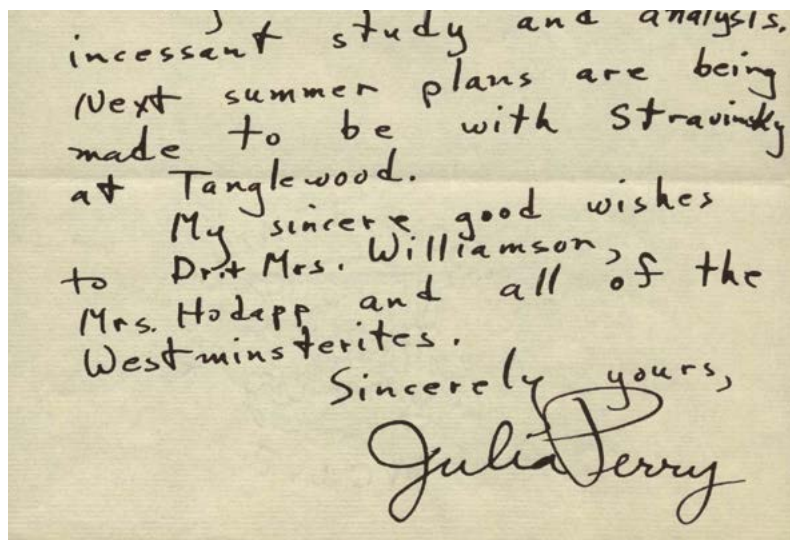 incessant study and analysis.
Next summer plans are being
made to be with Stravinsky
at Tanglewood.
My sincere good wishes
to Dr. + Mrs. Williamson,
Mrs. Hodapp and all of the
Westminsterites.
Sincerely yours,
Julia Perry